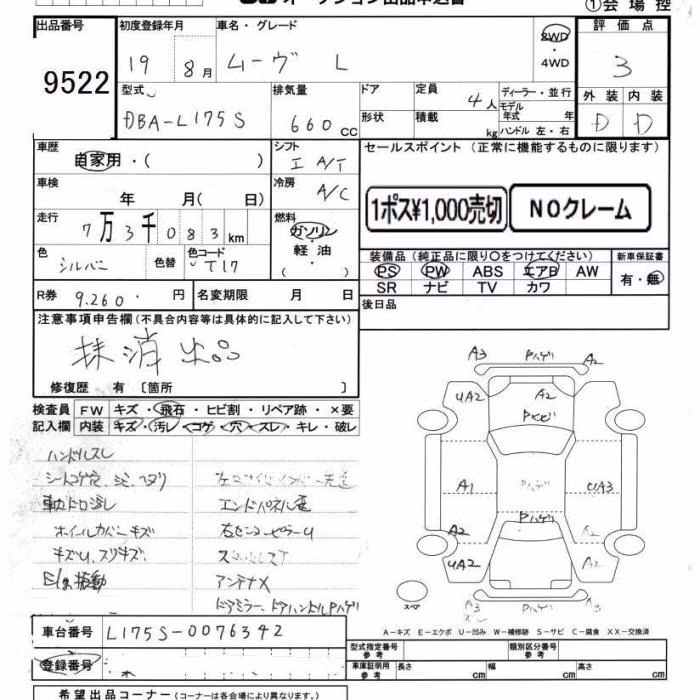 オークション出品申込書
①会場控
出品番号 初度登録年月 車名・グレード 評価点
9522
19 8月 ムーヴ L 2WD・4WD 3
型式 排気量 ドア 定員 4人 ディーラー・並行 外装 内装
DBA-L175S 660cc 形状 積載 kg モデル年式 年 D D
ハンドル 左・右
車歴 シフト セールスポイント (正常に機能するものに限ります)
自家用・( ) I A/T
車検 年 月( 日) 冷房 A/C
1ポス¥1,000売切 NOクレーム
走行 7万3千083km 燃料 ガソリン・軽油・( )
色 シルバー 色替 色コード T17
装備品 (純正品に限り〇をつけてください) 新車保証書
PS PW ABS エアB AW 有・無
SR ナビ TV カワ
R券 9.260・円 名変期限 月 日 後日品
注意事項申告欄 (不具合内容等は具体的に記入して下さい)
抹消出品
修復歴 有 〔箇所 〕
検査員 FW キズ・飛石・ヒビ割・リペア跡・×要
記入欄 内装 キズ・汚レ・コゲ・穴・スレ・キレ・破レ
ハンドルスレ
エンドパネル
ホイールカバーキズ
キズU、スリキズ
E/g振動 アンテナX
ドアミラー、ドアハンドルPハゲ
A3 Pハゲ A2
UA2 A2
A1 Pハゲ UA3
Pハゲ
A2 A2
UA2 A2
スペア A3 A3
A-キズ E-エクボ U-凹み W-補修跡 S-サビ C-腐食 XX-交換済
車台番号 L175S-0076342
登録番号
型式指定番号 参考 類別区分番号 参考
車庫証明用 参考 長さ cm 幅 cm 高さ cm
希望出品コーナー (コーナーは各会場により異なります。)